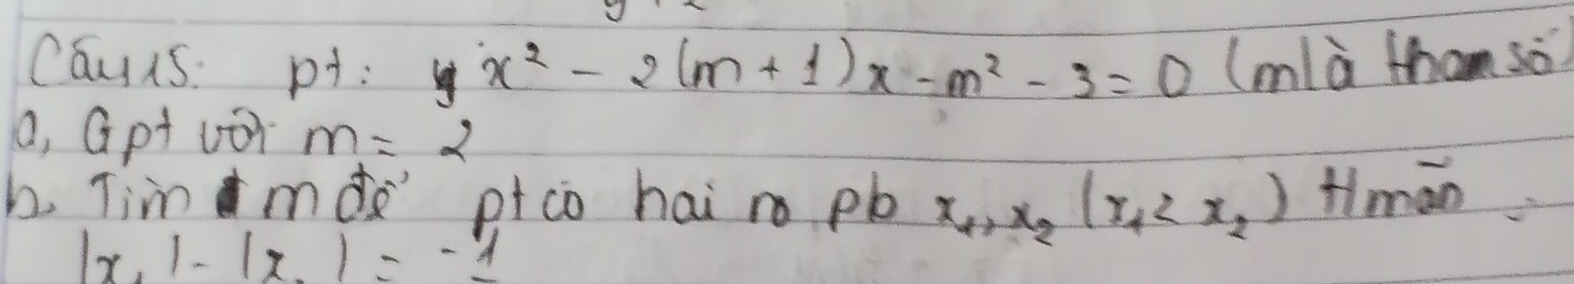 Câu 15: pt: x² - 2(m + 1)x - m² - 3 = 0 (m là tham số)
a, Gpt với m = 2
b. Tìm m để pt có hai no pb x₁, x₂ (x₁ < x₂) thmãn :
|x₁| - |x₂| = -1